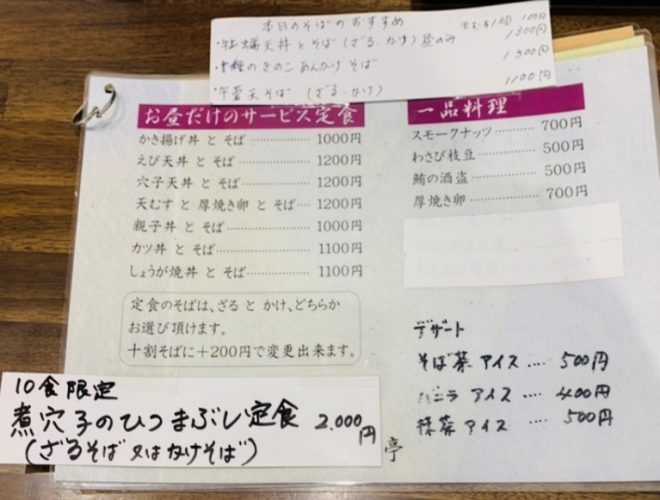 本日のそばのおすすめ
牡蠣天丼とそば(ざる・かけ)昼のみ 1300円
のきのこあんかけそば 1300円
そば(ざる・かけ) 1100円
お昼だけのサービス定食
かき揚げ丼 と そば 1000円
えび天丼 と そば 1200円
穴子天丼 と そば 1200円
天むす と 厚焼き卵 と そば 1200円
親子丼 と そば 1000円
カツ丼 と そば 1100円
しょうが焼丼 と そば 1100円
定食のそばは、ざる と かけ、どちらか
お選び頂けます。
十割そばに+200円で変更出来ます。
一品料理
スモークナッツ 700円
わさび枝豆 500円
鮪の酒盗 500円
厚焼き卵 700円
デザート
そば茶アイス 500円
バニラアイス 400円
抹茶アイス 500円
10食限定
煮穴子のひつまぶし定食 2,000円
(ざるそば又はかけそば)
亭